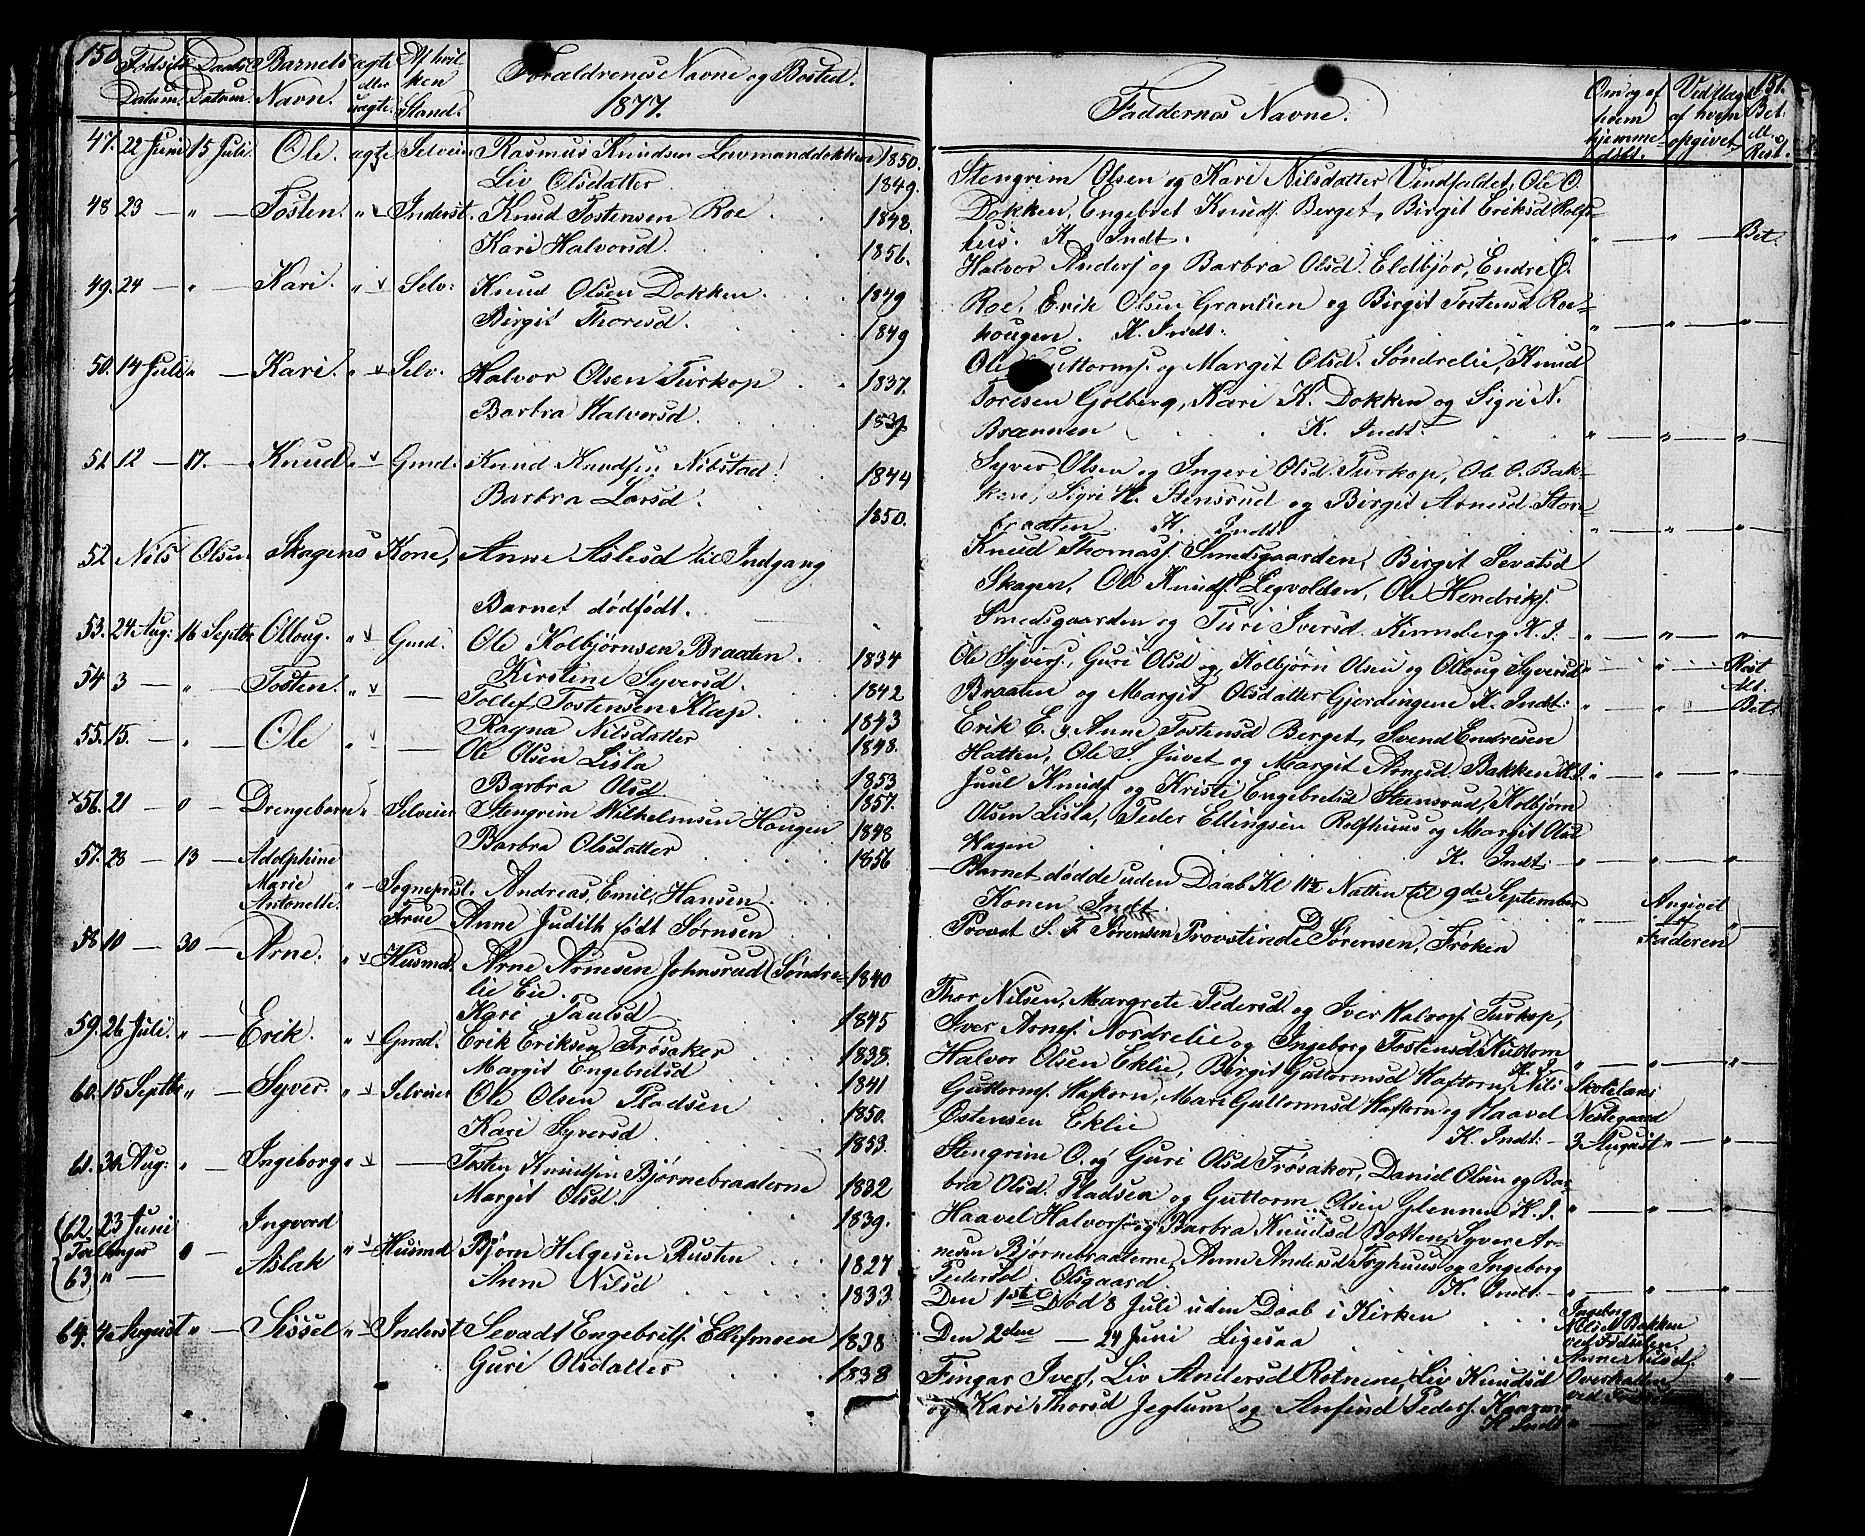 150
Fødsels Datum. Daabs Datum. Barnets Navn. ægte eller uægte. Af hvilken Stand. Forældrenes Navne og Bosted.
1877.
47. 22 Juni 15 Juli. Ole. ægte Selveier Rasmus Knudsen 1850.
Liv Olsdatter 1849.
48 23 — " — Tosten. " v Inderst. Knud Tostensen Roe. 1848.
Kari Halvorsd. 1856.
49. 24 — " — Kari. " v Selv: Knud Olsen Dokken. 1849
Birgit Thoresd. 1849
50. 14 Juli " — Kari. " v Selv. Halvor Olsen Turkop 1837.
Barbra Halvorsd. 1839
51. 12 — 17. — Knud " v Gmd. Knud Knudsen Nibstad 1844
Barbra Larsd. 1850.
52 Nils Olsen Skagens Kone, Anne Aslesd til Indgang
Barnet dødfødt.
53. 24 Aug: 16 Septbr Olloug. " v Gmd: Ole Kolbjørnsen Braaten. 1834
Kirstine Syversd. 1842
54 3 — " — Tosten. " v — Tollef Tostensen Klap. 1843
Ragna Nilsdatter 1848.
55. 15. — " — Ole " v — Ole Olsen Lisla 1853
Barbra Olsd 1857.
×56. 21 — " — Drengebarn " Selveier Stengrim Wilhelmsen Hougen 1848
Barbra Olsdatter 1856
57. 28 — 13 — Adolphine
Marie " — Sogneprst. Andreas Emil Hansen.
Antonette. Frue Anne Judith født Sørnsen
58. 10 — 30 — Arne. " v Husmd. Arne Arnesen Johnsrud (Søndre- 1840
lie Eie.
Kari Paulsd 1845
59. 26 Juli. " — Erik. " v Gmd. Erik Eriksen Frøsaker 1835.
Margit Engebretsd 1841
60. 15 Septbr " — Syver. " v Selveier Ole Olsen Pladsen 1850.
Kari Syversd. 1853.
61. Aug: " — Ingeborg " v — Tosten Knudsen Bjørnebraatene 1832
Margit Olsd. 1839.
(62. 23 Juni Ingvord
Tvillinger " — " v Husmd Bjørn Helgesen Rusten 1827
(63) " — Aslak Anne Nilsd 1833.
64. August " — Sissel " v Inderst Sevadt Engebretsf. Ellefsmoen 1838
Guri Olsdatter 1838
151.
Faddernes Navne. Om og af hvem hjemme døbt. Ved Slægt af hvem opgivet Bet. el. Rest.
Stengrim Olsen og Kari Nilsdatter Vindfaldet, Ole O.
Dokken, Engebret Knuds. Berget, Birgit Eriksd Rolfs-
hus. K. Indt. " — " — Bet.
Halvor Andersf og Barbra Olsd. Eldbjør, Endre O.
Roe, Erik Olsen Grønlien og Birgit Tostensd Roe-
hougen. K. Indt: " — " — "
Ole Guttormsf. og Margit Olsd. Søndrelie, Knud
Toresen Golberg, Kari K. Dokken og Sigri N.
Brænnen K. Indt: " — " — "
Syver Olsen og Ingeri Olsd Turkop, Ole O. Bak-
ken, Sigri H. Stensrud og Birgit Arnesd Stor-
braaten. K. Indt. " — " — "
Knud Thomasf. Smedsgaarden, Birgit Sevatsd
Skagen, Ole Knudsf. Legvolden, Ole Hendriksf.
Smedsgaarden og Turi Iversd. Kinneberg K. I. " — " — "
Ole Syversf., Guri Olsd og Kolbjørn Olsen og Olloug Syversd " — " — Rest
Braaten og Margit Olsdatter Gjerdingene K. Indt: " — " — Bet:
Erik E. og Anne Tostensd Berget, Svend Endresen
Hatten, Ole S. Juvet og Margit Arnesd. Bakken K. I. " — " — "
Juul Knudsf og Kristi Engebretsd Stensrud, Kolbjørn
Olsen Lisla, Peder Ellingsen Rolfshuus og Margit Olsd
Hagen K. Indt: " — " — "
— Barnet dødde uden Daab Kl 11½ Natten til 9de September
Konen Indt. " — Angivet af Faderen "
Provst S. F. Sørensen, Provstinde D Sørensen, Frøken
Thor Nilsen, Margrete Pedersd. og Iver Halvorsf. Turkop,
Iver Arnesf. Nordrelie og Ingeborg Tostensd K. I. " — " — "
Halvor Olsen Eklie, Birgit Guttormsd Haftorn, Nils Skolelær:
Guttormsf. Haftorn, Mari Guttormsd Haftorn og Haavel Nestegaard
Østensen Eklie K. Indt: — 3 August " — "
Stengrim O. og Guri Olsd Frøsaker, Daniel Olsen og Bar-
bra Olsd. Pladsen og Guttorm Olsen Glennen K. I. " — " — "
Haavel Halvorsf og Barbra Knudsd Botten, Syver Ar-
nesen Bjørnebraatene, Anne Andersd Tryghuus og Ingeborg
Pedersd. Olsgaard. K. Indt: " — " — "
Den 1ste Død 8 Juli uden Daab i Kirken Ingeborg Nilsd Bakken
Den 2den — 24 Juni Ligesaa ved Fødselen. Anne Nilsd
Fingar Iversf, Liv Andersd Rotneim, Liv Knudsd
og Kari Thorsd Jeglum og Anfind Pedersf.
K. Indt " — "